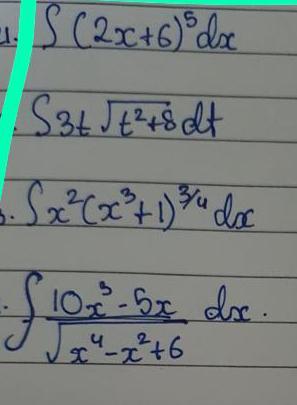 1. ∫(2x+6)⁵dx
. ∫3t √(t²+8) dt
3. ∫x²(x³+1)^(3/4) dx
. ∫ (10x³-5x)/√(x⁴-x²+6) dx.